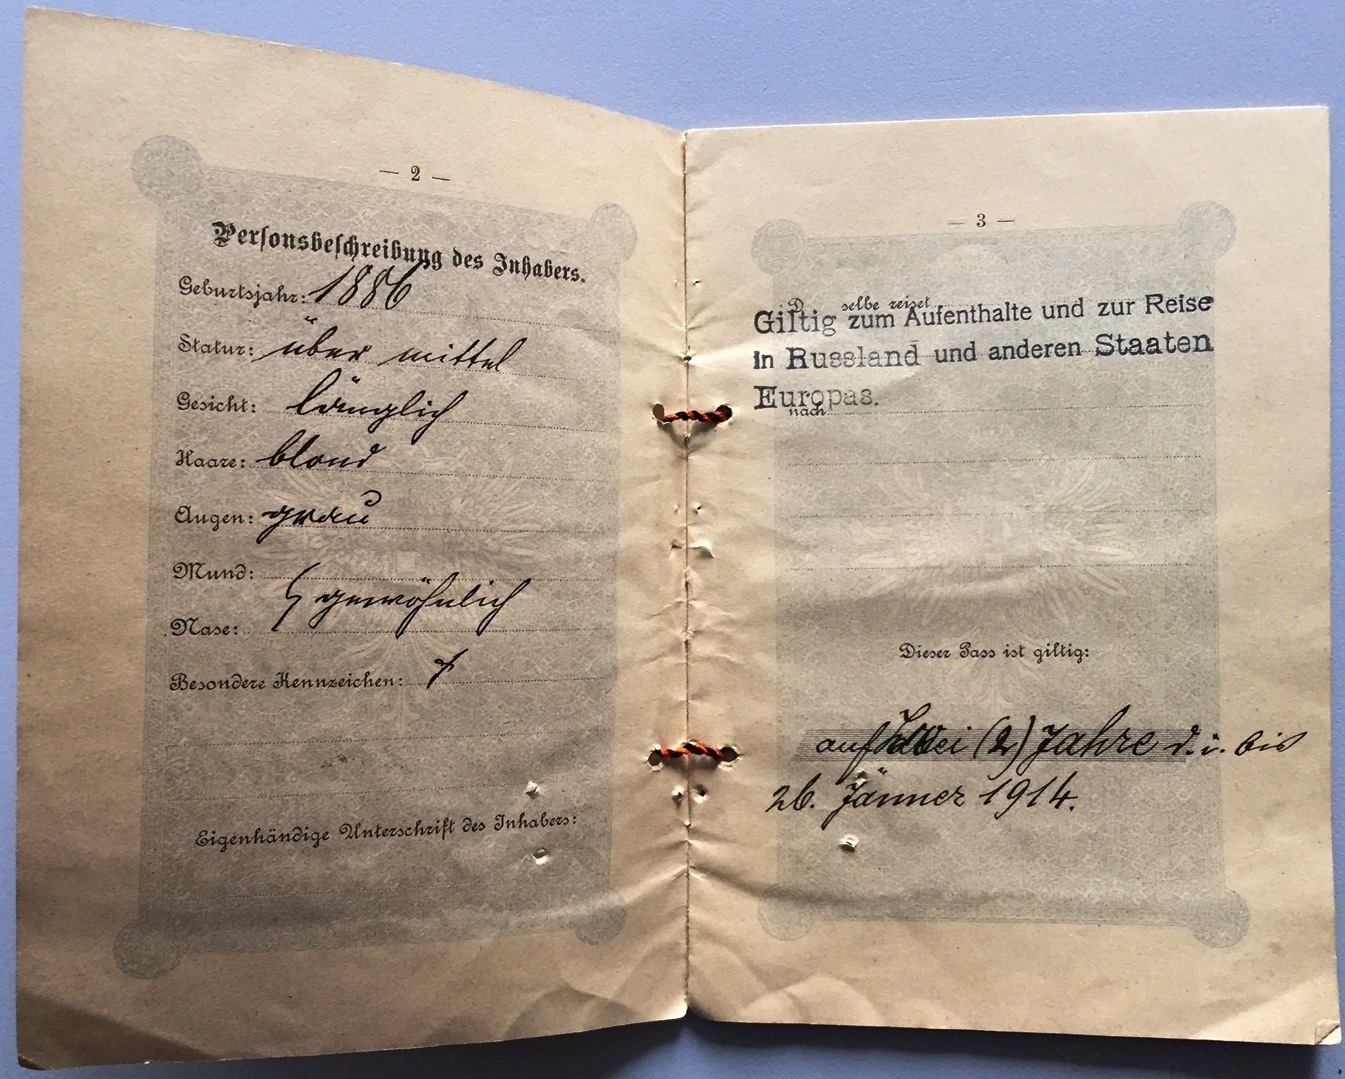 — 2 —
Personsbeschreibung des Inhabers.
Geburtsjahr: 1886
Statur: über mittel
Gesicht: länglich
Haare: blond
Augen: grau
Mund:
gewöhnlich
Nase:
Besondere Kennzeichen:
Eigenhändige Unterschrift des Inhabers:
— 3 —
D selbe reiset
Giltig zum Aufenthalte und zur Reise
in Russland und anderen Staaten
Europas.
nach
Dieser Pass ist giltig:
auf Zwei (2) Jahre d. i. bis
26. Jänner 1914.